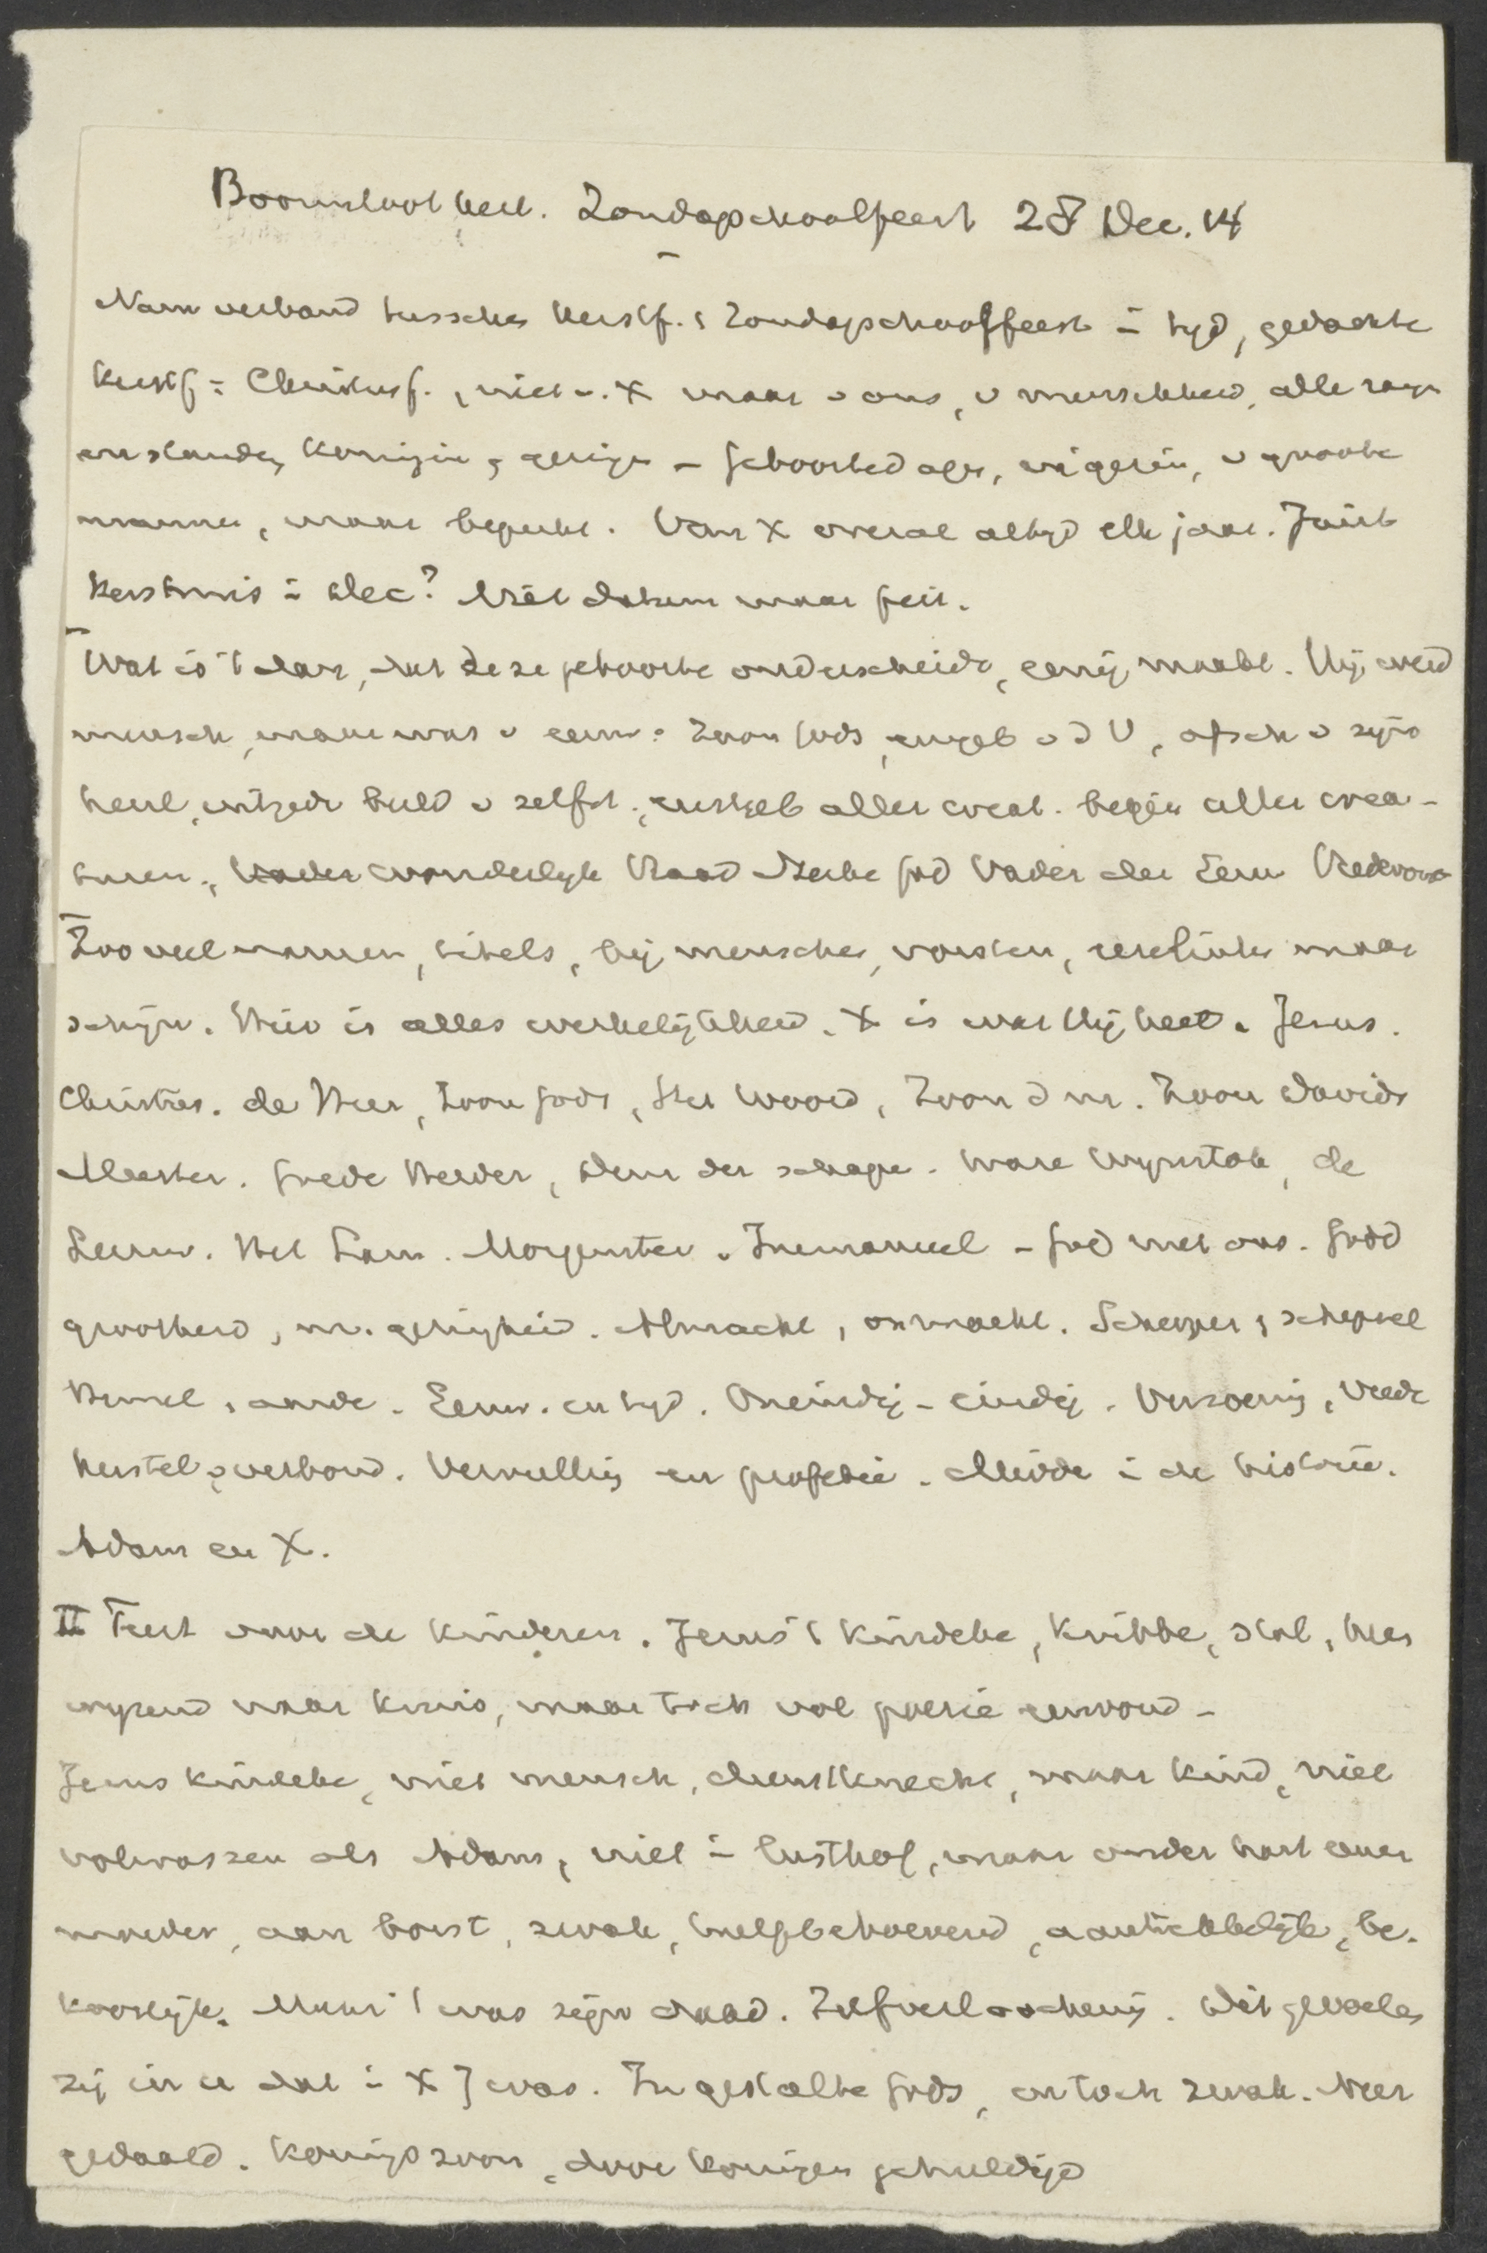 Boomsloot kerk. Zondagschoolfeest 28 Dec. 14
Nauw verband tusschen Kerstf. & Zondagschoolfeest in tyd, gedachte
Kerstf = Christusf., niet v. X maar v ons, v menschheid, alle rangen
en standen, Koningin, geringen – Geboortedagen, vieren, v groote
mannen, maar beperkt. Van X overal altyd elk jaar. Juist
Kerstmis in Dec? Niet datum maar feit.
Wat is 't dan, dat deze geboorte onderscheidt, eenig maakt. Hij werd
mensch, maar was v eeuw. Zoon Gods, eengeb v d V, afsch v zijn
heerl, uitgedr beeld v zelfst., eerstgeb aller creat. begin aller crea-
turen, Vader wonderlyk Raad Sterke God Vader der Eeuw Vredevorst
Zooveel namen, titels, bij menschen, vorsten, maar
schijn. Hier is alles werkelijkheid. X is wat Hij heet. Jesus.
Christus. de Heer, Zoon Gods, Het Woord, Zoon d m. Zoon Davids
Meester. Goede Herder, Deur der schapen. Ware Wynstok, de
Leeuw. Het Lam. Morgenster. Immanuel – God met ons. Godd
grootheid, m. geringheid. Almacht, onmacht. Schepper & schepsel
Hemel, aarde. Eeuw. en tyd. Oneindig – eindig. Verzoening, Vrede
herstel v verbond. Vervulling en profetie. Midde in de historie.
Adam en X.
II Feest voor de kinderen. Jesus 't Kindeke, Kribbe, stal,
wyzend naar kruis, maar toch vol poezie eenvoud –
Jesus kindeke, niet mensch, dienstknecht, maar kind, niet
volwassen als Adam, niet in lusthof, maar onder hart eener
moeder, aan borst, zwak, hulpbehoevend, aantrekkelijk, be-
koorlyk. Maar 't was zijn daad. Zelfverloochening. Dit gevoelen
zij in u dat in X J was. In gestalte Gods, en toch zwak. Neer
gedaald. Koningszoon, door koningen gehuldigd